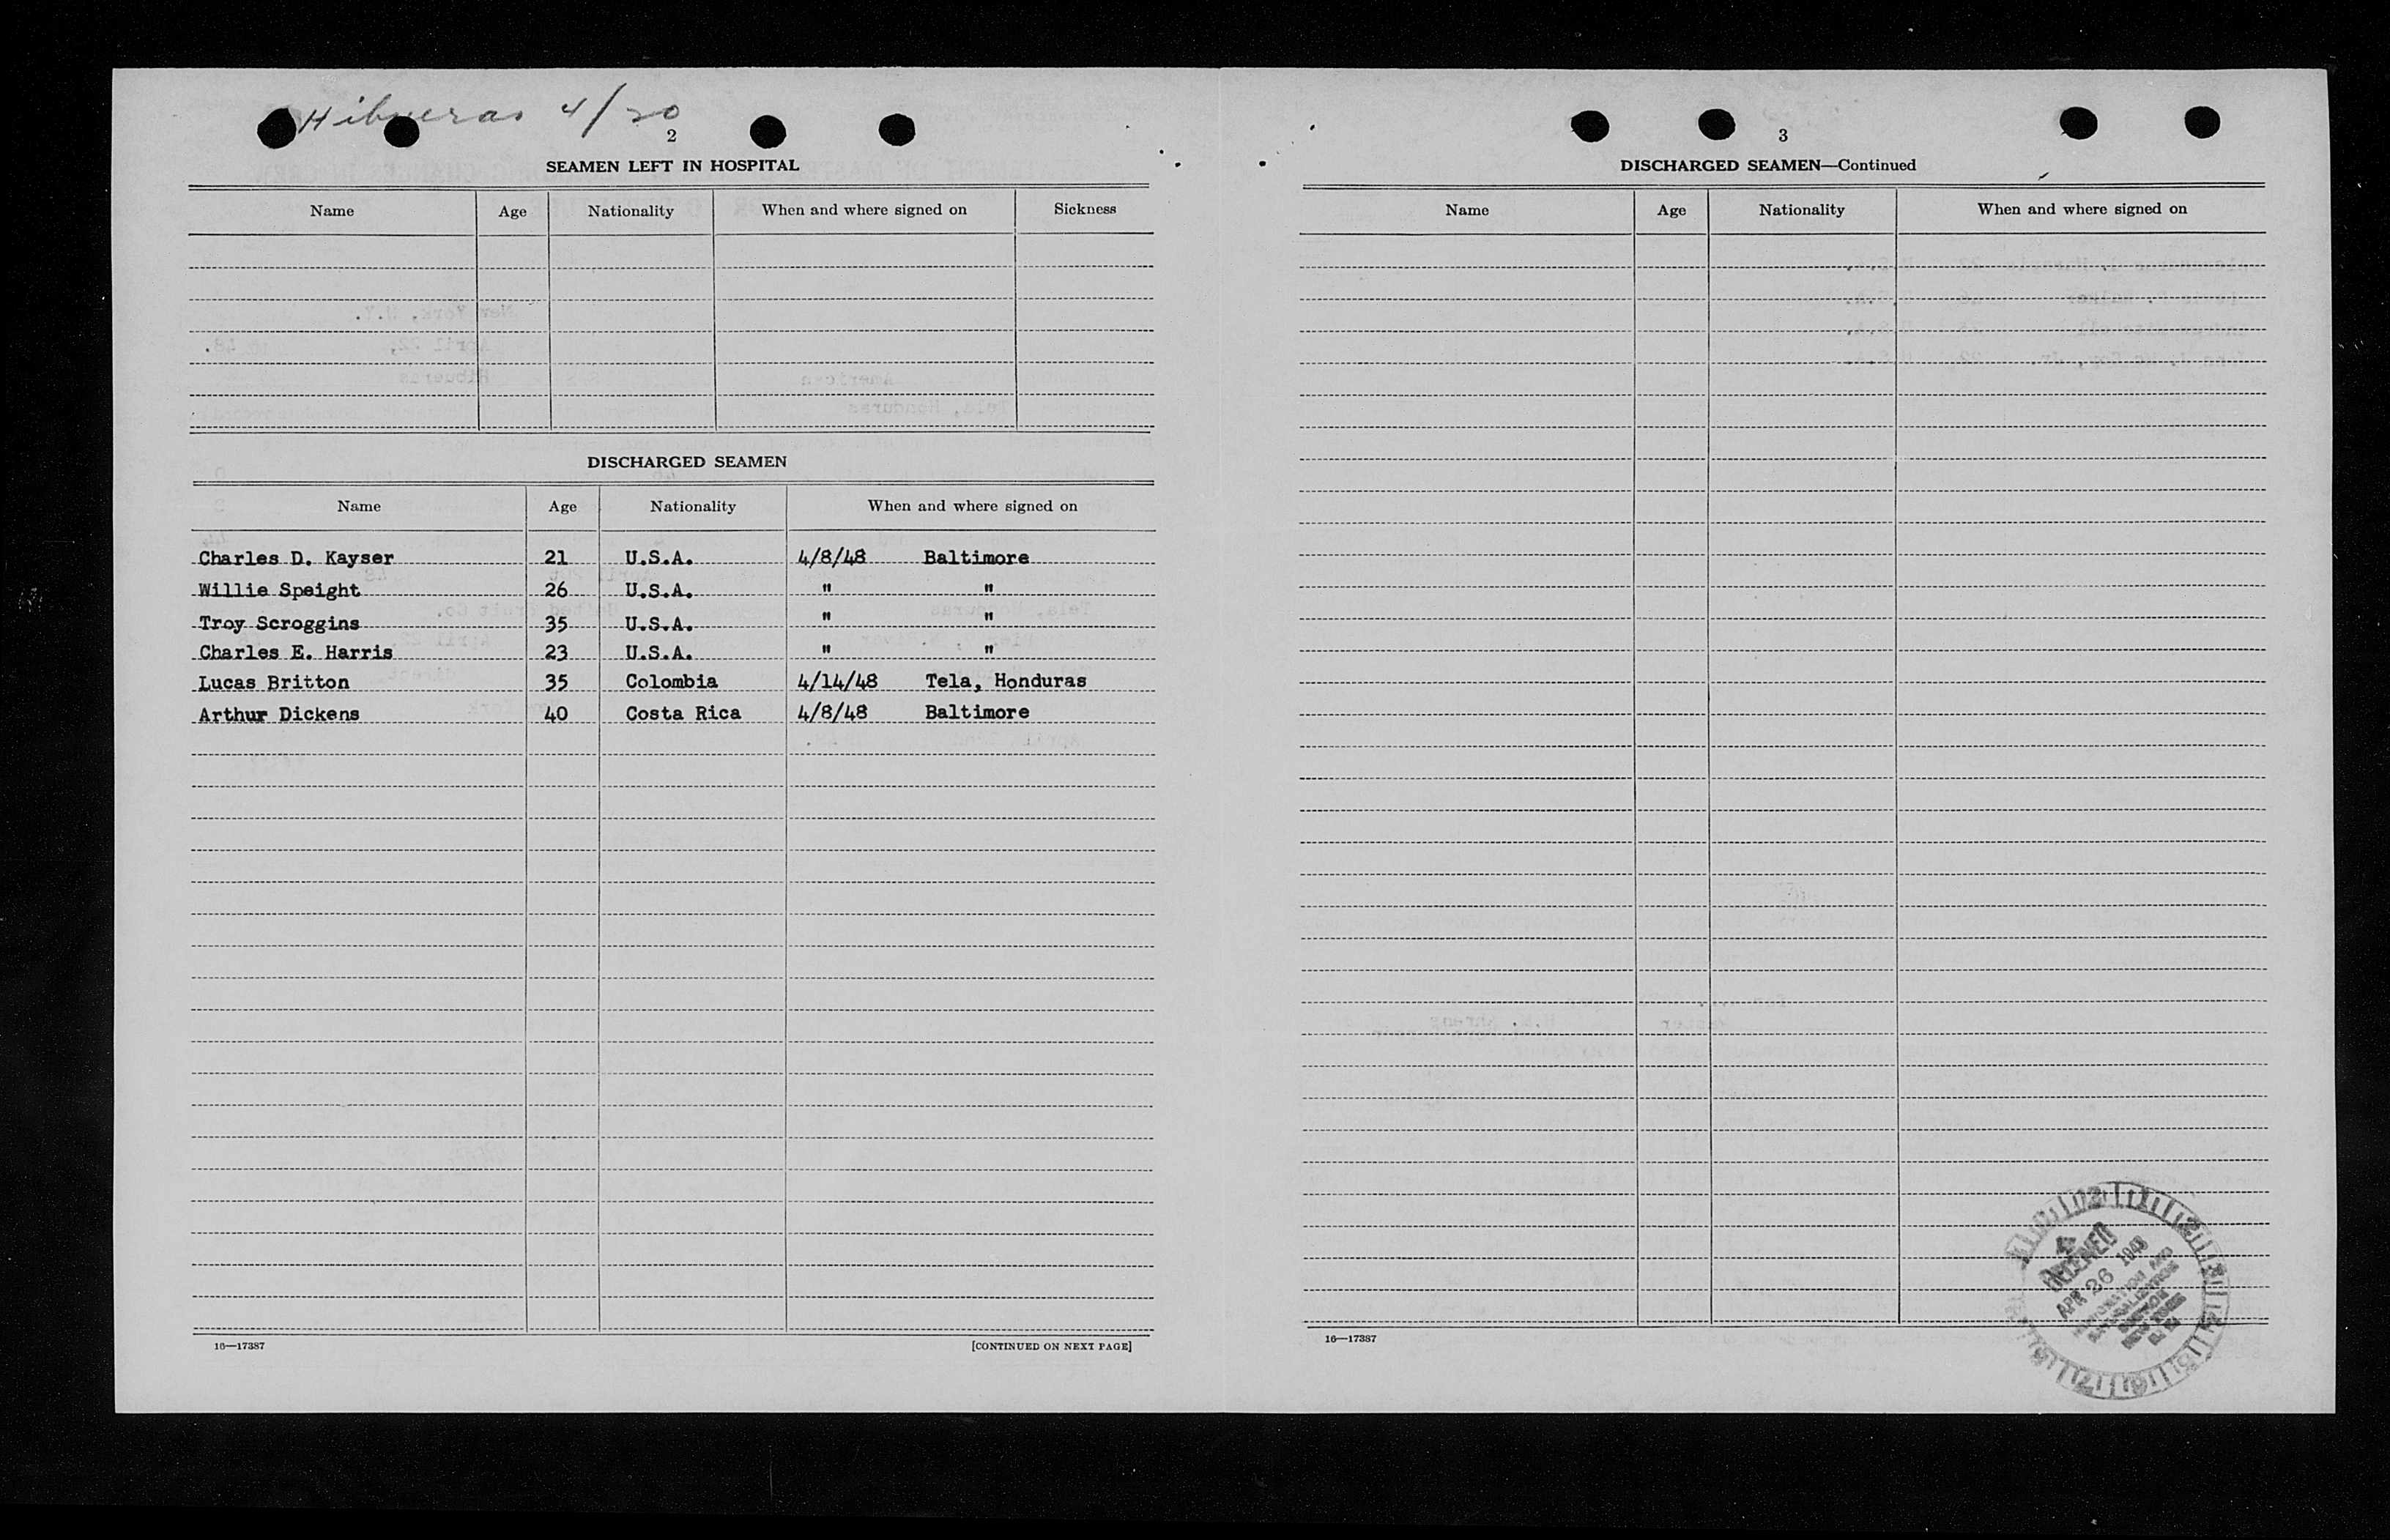 Hibueras 4/20
2
SEAMEN LEFT IN HOSPITAL
Name Age Nationality When and where signed on Sickness
DISCHARGED SEAMEN
Name Age Nationality When and where signed on
Charles D. Kayser 21 U.S.A. 4/8/48 Baltimore
Willie Speight 26 U.S.A. " "
Troy Scroggins 35 U.S.A. " "
Charles E. Harris 23 U.S.A. " "
Lucas Britton 35 Colombia 4/14/48 Tela, Honduras
Arthur Dickens 40 Costa Rica 4/8/48 Baltimore
16—17387 [CONTINUED ON NEXT PAGE]
3
DISCHARGED SEAMEN—Continued
Name Age Nationality When and where signed on
RECEIVED
APR 26 1948
16—17387